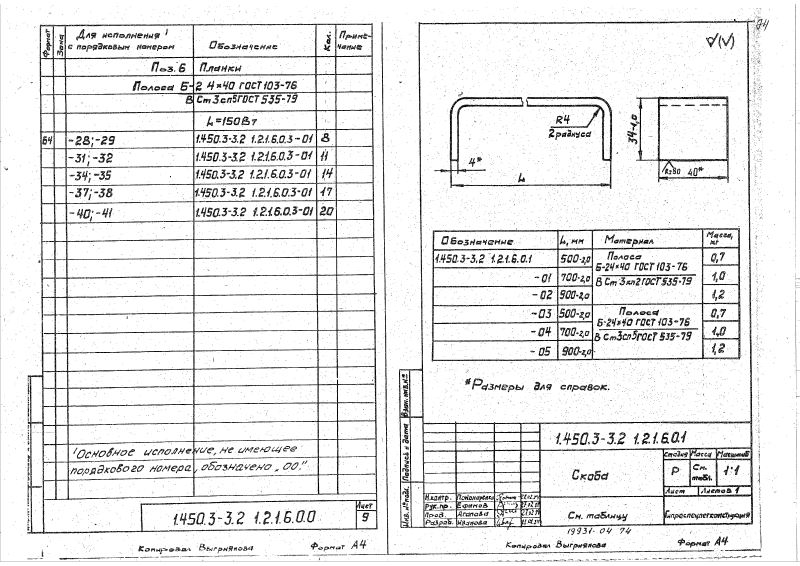 Формат
Зона
Для исполнения ¹
с порядковым номером
Обозначение
Кол.
Приме-
чание
Поз. 6 Планки
Полоса Б-2 4×40 ГОСТ 103-76
В Ст 3сп5 ГОСТ 535-79
L=150 Вт
Б4 -28;-29 1.450.3-3.2 1.2.1.6.0.3-01 8
-31;-32 1.450.3-3.2 1.2.1.6.0.3-01 11
-34;-35 1.450.3-3.2 1.2.1.6.0.3-01 14
-37;-38 1.450.3-3.2 1.2.1.6.0.3-01 17
-40;-41 1.450.3-3.2 1.2.1.6.0.3-01 20
¹Основное исполнение, не имеющее
порядкового номера, обозначено „00."
1.450.3-3.2 1.2.1.6.0.0
Лист
9
Копировал Выгриянова Формат А4
94
√(√)
R4
2 радиуса
4*
L
34-1,0
Rz80
40*
Обозначение L, мм Материал Масса, кг
1.450.3-3.2 1.2.1.6.0.1 500-2,0 Полоса 0,7
Б-2 4×40 ГОСТ 103-76
-01 700-2,0 В Ст 3кп2 ГОСТ 535-79 1,0
-02 900-2,0 1,2
-03 500-2,0 Полоса 0,7
Б-2 4×40 ГОСТ 103-76
-04 700-2,0 В Ст 3сп5 ГОСТ 535-79 1,0
-05 900-2,0 1,2
*Размеры для справок.
Взам. инв. №
Подпись и дата
Инв. № подл.
1.450.3-3.2 1.2.1.6.0.1
Скоба
Стадия Масса Масштаб
Р См. табл. 1:1
Лист Листов 1
Н.контр. Пономаренко
Рук. пр. Ефимов
Пров. Агапова
Разраб. Иванова
См. таблицу
19931-04 94
Копировал Выгриянова Формат А4